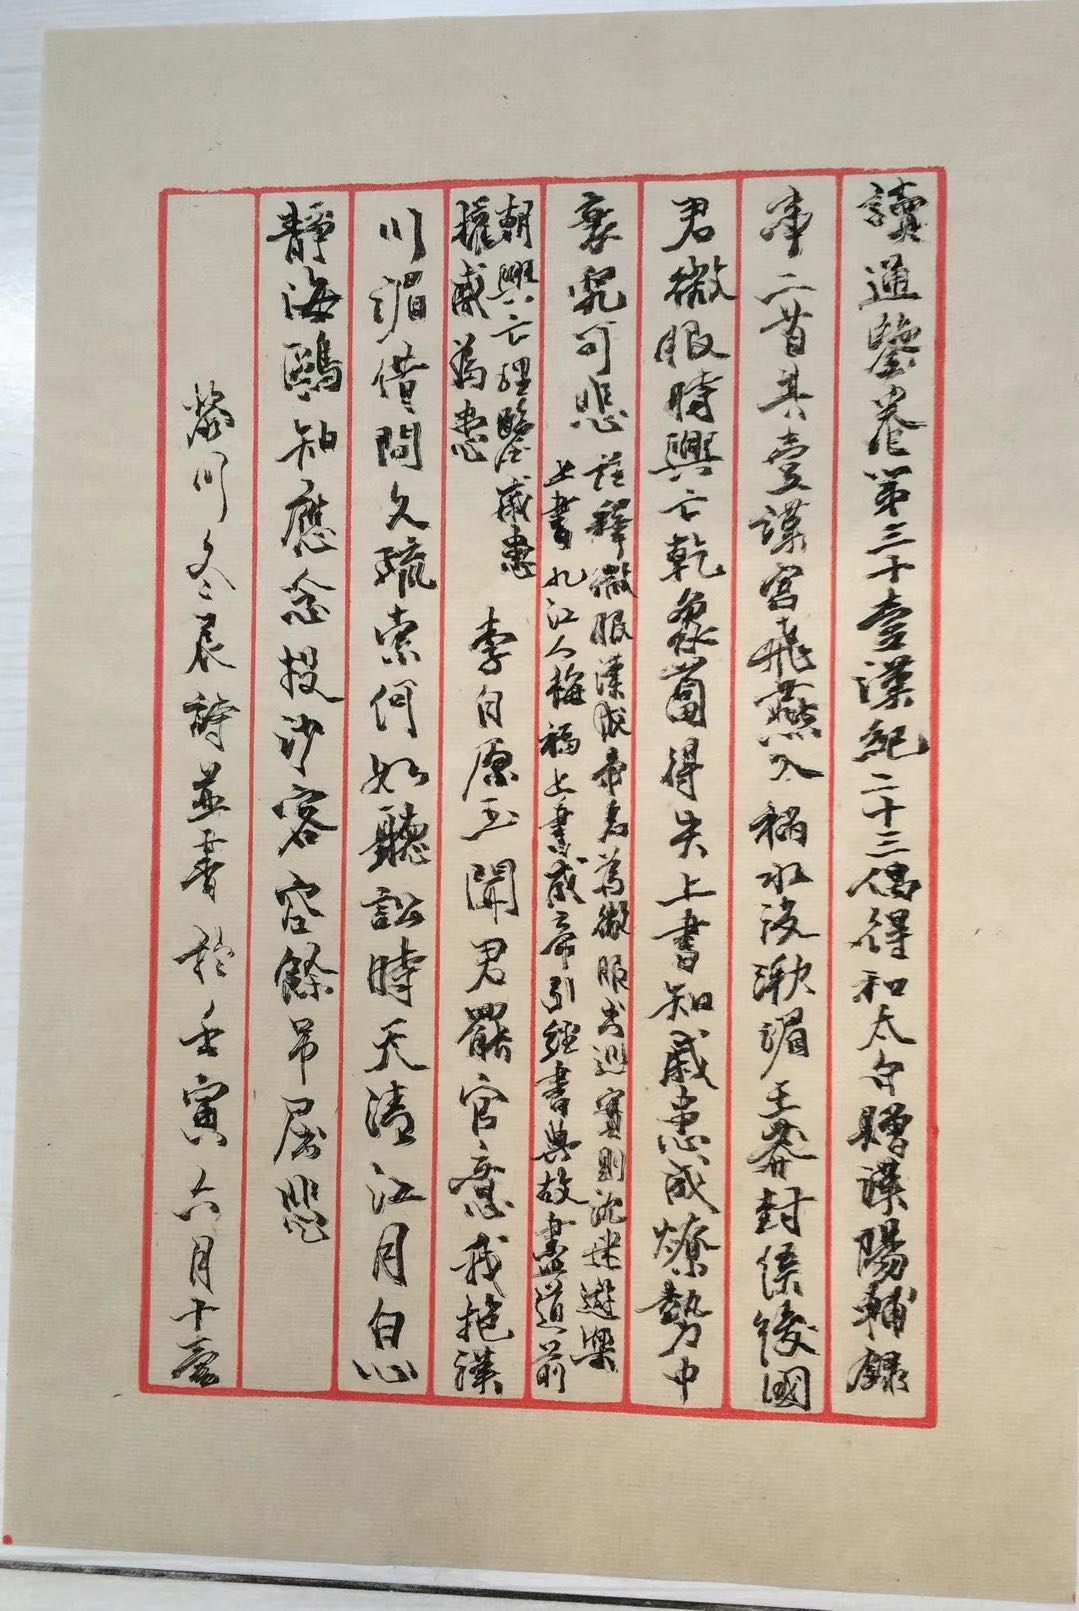 讀通鑒卷第三十壹漢紀二十三偶得和太白贈漢陽輔錄
事二首其壹漢宮飛燕入禍水沒湫湄王莽封侯後國
君微服時興亡乾象啚得失上書知戚患成燎勢中
衰兒可悲
註釋微服漢成帝名為微服出巡實則沈迷遊樂
上書九江人梅福上書成帝引經書典故盡道前
朝興亡經鑒戚患
權戚為患
李白原玉聞君罷官意我抱漢
川湄借問久疏索何如聽訟時天清江月白心
靜海鷗知應念投沙客空餘吊屈悲
川文三晨詩並書於壬寅六月十壹